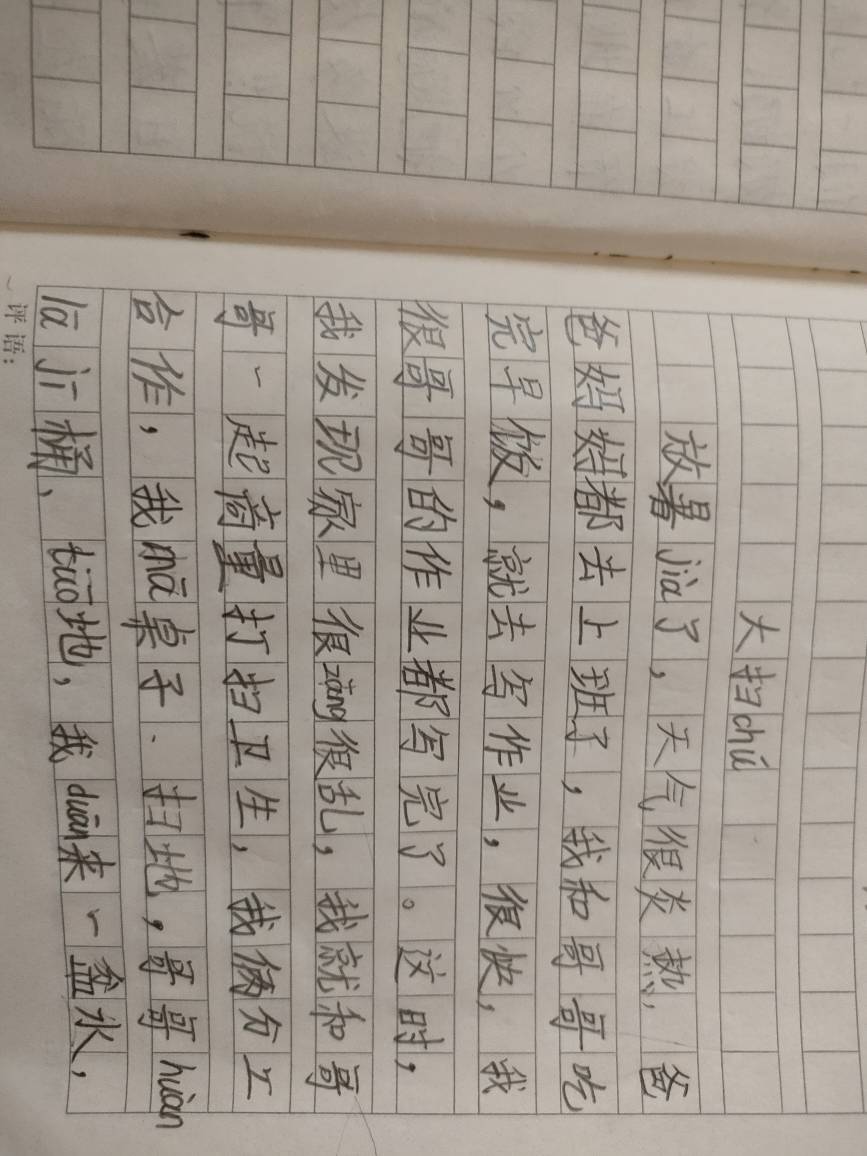 大扫chú
放暑jià了，天气很炎热，爸
爸妈妈都去上班了，我和哥哥吃
完早饭，就去写作业，很快，我
很哥哥的作业都写完了。这时，
我发现家里很zāng很乱，我就和哥
哥一起商量打扫卫生，我俩分工
合作，我mā桌子、扫地，哥哥huàn
lā jī桶、tuō地，我duān来一盆水，
评语：